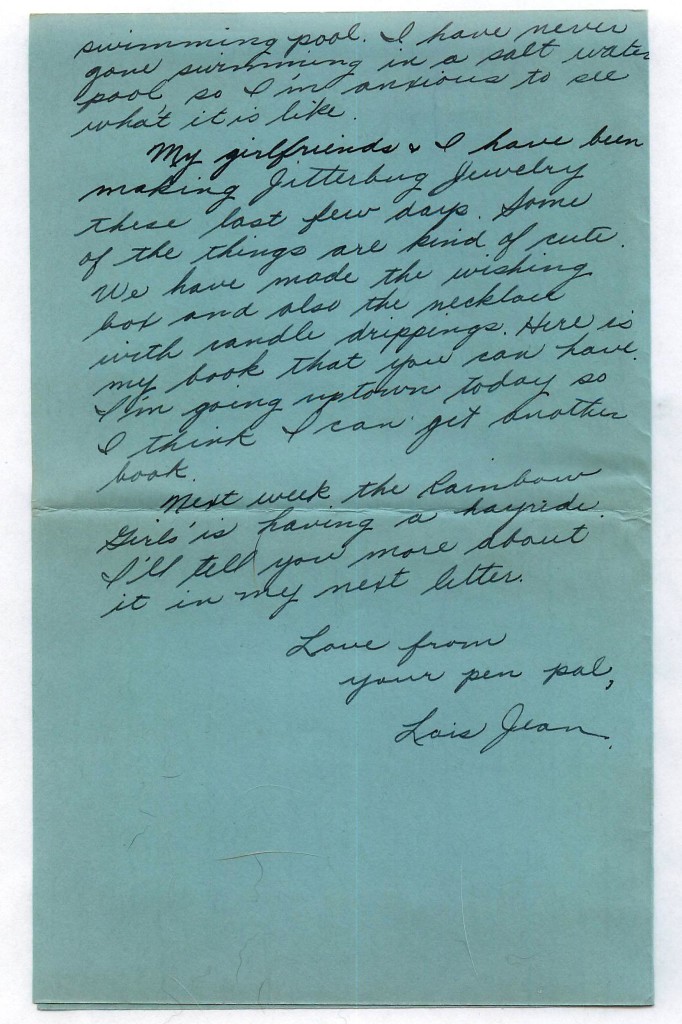 swimming pool. I have never
gone swimming in a salt water
pool so I'm anxious to see
what it is like.
My girlfriends & I have been
making Jitterbug Jewelry
these last few days. Some
of the things are kind of cute.
We have made the wishing
box and also the necklace
with candle drippings. Here is
my book that you can have.
I'm going uptown today so
I think I can get another
book.
Next week the Rainbow
Girls' is having a hayride.
I'll tell you more about
it in my next letter.
Love from
your pen pal,
Lois Jean.